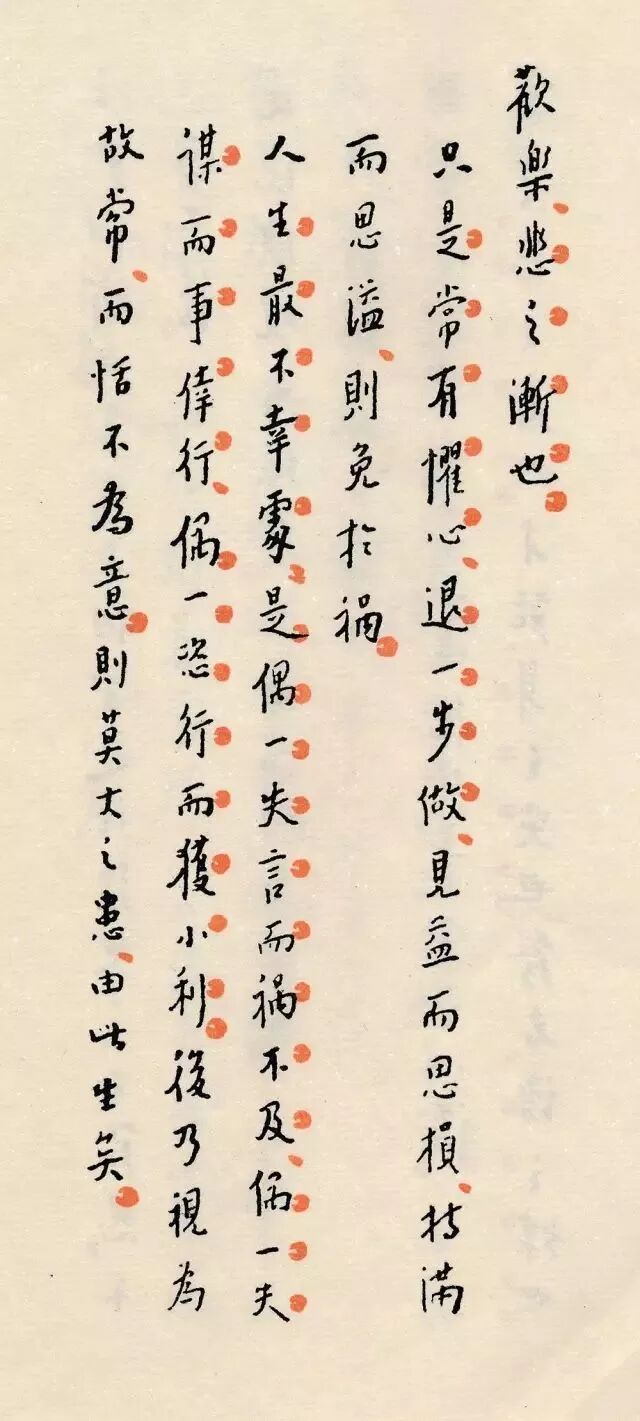 歡樂、悲之漸也。
只是常有懼心、退一步做、見益而思損、持滿
而思溢、則免於禍。
人生最不幸處、是偶一失言而禍不及、偶一失
謀而事倖行、偶一恣行而獲小利。後乃視為
故常、而恬不為意。則莫大之患、由此生矣。